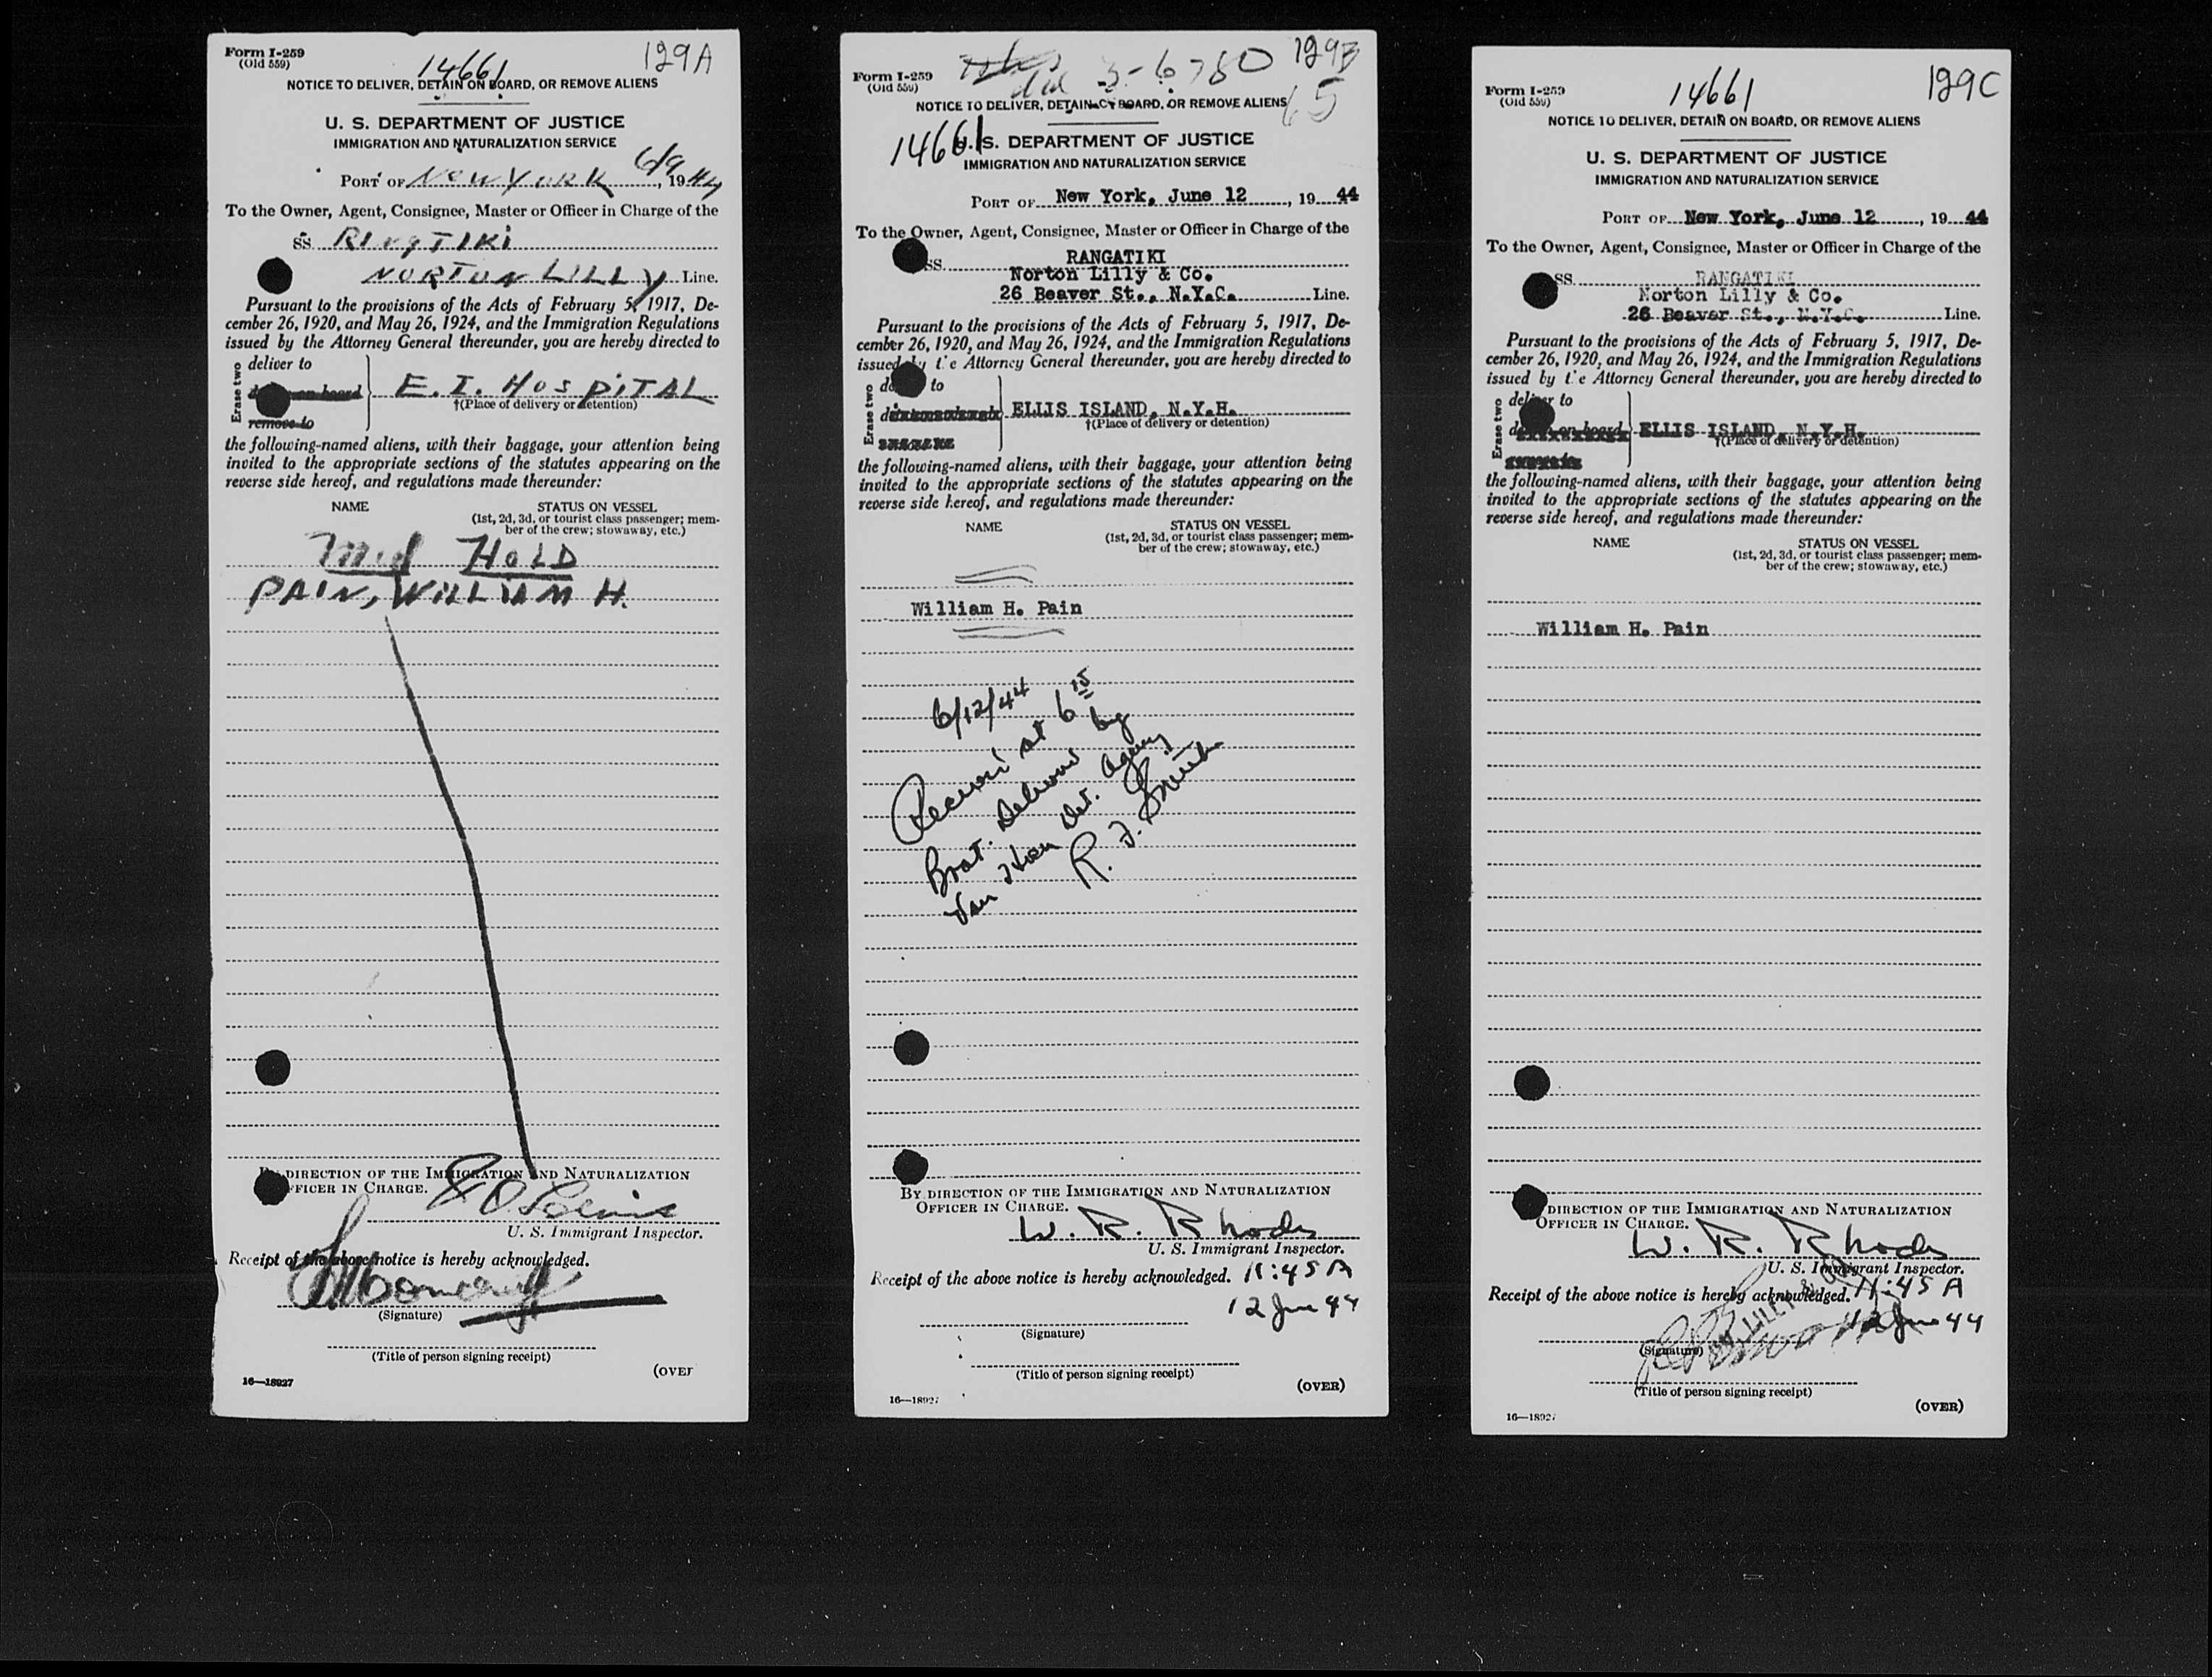 Form I-259
(Old 559)
14661
129A
NOTICE TO DELIVER, DETAIN ON BOARD, OR REMOVE ALIENS
U. S. DEPARTMENT OF JUSTICE
IMMIGRATION AND NATURALIZATION SERVICE
PORT OF NEW YORK 6/9, 1944
To the Owner, Agent, Consignee, Master or Officer in Charge of the
SS. RINGTIKI
NORTON LILLY Line.
Pursuant to the provisions of the Acts of February 5, 1917, De-
cember 26, 1920, and May 26, 1924, and the Immigration Regulations
issued by the Attorney General thereunder, you are hereby directed to
Erase two
deliver to
on board
remove to
E. I. HOSPITAL
†(Place of delivery or detention)
the following-named aliens, with their baggage, your attention being
invited to the appropriate sections of the statutes appearing on the
reverse side hereof, and regulations made thereunder:
NAME STATUS ON VESSEL
(1st, 2d, 3d, or tourist class passenger; mem-
ber of the crew; stowaway, etc.)
Med HOLD
PAIN, WILLIAM H.
BY DIRECTION OF THE IMMIGRATION AND NATURALIZATION
OFFICER IN CHARGE.
U. S. Immigrant Inspector.
Receipt of the above notice is hereby acknowledged.
(Signature)
(Title of person signing receipt)
(OVER
16—18927
129B
Form I-259
(Old 559)
3-6780
65
NOTICE TO DELIVER, DETAIN ON BOARD, OR REMOVE ALIENS
14661
U. S. DEPARTMENT OF JUSTICE
IMMIGRATION AND NATURALIZATION SERVICE
PORT OF New York, June 12, 1944
To the Owner, Agent, Consignee, Master or Officer in Charge of the
SS. RANGATIKI
Norton Lilly & Co.
26 Beaver St., N.Y.C. Line.
Pursuant to the provisions of the Acts of February 5, 1917, De-
cember 26, 1920, and May 26, 1924, and the Immigration Regulations
issued by the Attorney General thereunder, you are hereby directed to
Erase two
to
ELLIS ISLAND, N.Y.H.
†(Place of delivery or detention)
the following-named aliens, with their baggage, your attention being
invited to the appropriate sections of the statutes appearing on the
reverse side hereof, and regulations made thereunder:
NAME STATUS ON VESSEL
(1st, 2d, 3d, or tourist class passenger; mem-
ber of the crew; stowaway, etc.)
William H. Pain
6/12/44
at 6 15
Boat. by
Van Det. Agency
R. J. Smith
BY DIRECTION OF THE IMMIGRATION AND NATURALIZATION
OFFICER IN CHARGE.
W. R. Rhodes
U. S. Immigrant Inspector.
Receipt of the above notice is hereby acknowledged. 11:45 A
12 June 44
(Signature)
(Title of person signing receipt)
(OVER)
16—18927
Form I-259
(Old 559)
14661
129C
NOTICE TO DELIVER, DETAIN ON BOARD, OR REMOVE ALIENS
U. S. DEPARTMENT OF JUSTICE
IMMIGRATION AND NATURALIZATION SERVICE
PORT OF New York, June 12, 1944
To the Owner, Agent, Consignee, Master or Officer in Charge of the
SS. RANGATIKI
Norton Lilly & Co.
26 Beaver St., N.Y.C. Line.
Pursuant to the provisions of the Acts of February 5, 1917, De-
cember 26, 1920, and May 26, 1924, and the Immigration Regulations
issued by the Attorney General thereunder, you are hereby directed to
Erase two
deliver to
on board
ELLIS ISLAND, N.Y.H.
†(Place of delivery or detention)
the following-named aliens, with their baggage, your attention being
invited to the appropriate sections of the statutes appearing on the
reverse side hereof, and regulations made thereunder:
NAME STATUS ON VESSEL
(1st, 2d, 3d, or tourist class passenger; mem-
ber of the crew; stowaway, etc.)
William H. Pain
BY DIRECTION OF THE IMMIGRATION AND NATURALIZATION
OFFICER IN CHARGE.
W. R. Rhodes
U. S. Immigrant Inspector.
Receipt of the above notice is hereby acknowledged. 11:45 A
12 June 44
(Signature)
(Title of person signing receipt)
(OVER)
16—18927